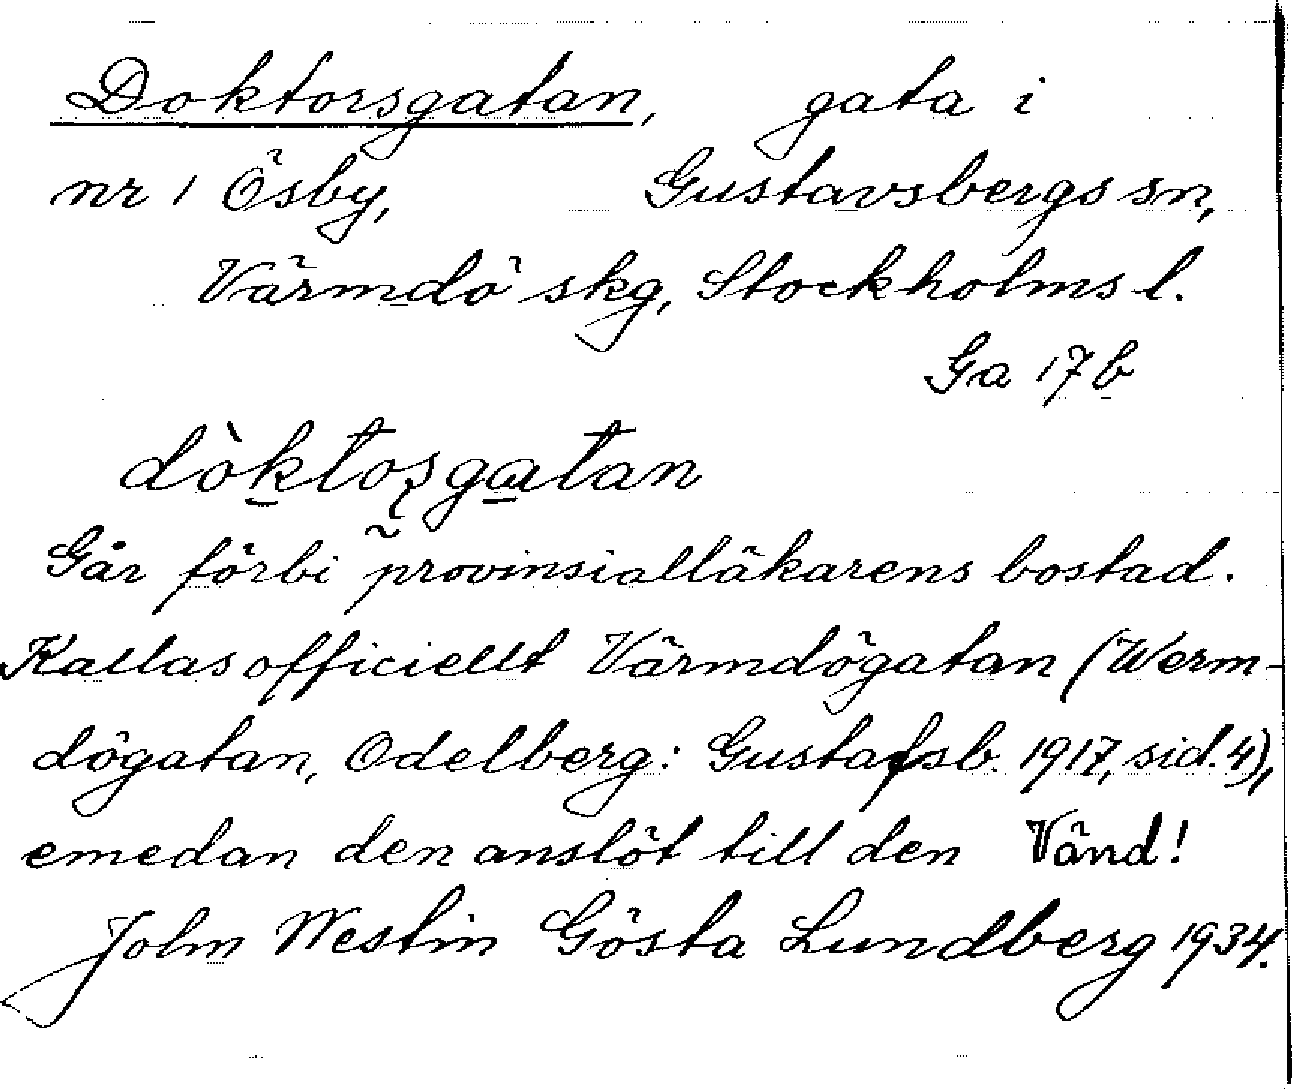 Doktorsgatan, gata i
nr 1 Ösby, Gustavsbergs sn,
Värmdö skg, Stockholms l.
Ga 17 b
dòktosgatan
Går förbi provinsialläkarens bostad.
Kallas officiellt Värmdögatan (Werm-
dögatan, Odelberg: Gustafsb. 1917, sid. 4),
emedan den anslöt till den Vänd!
John Westin Gösta Lundberg 1934.